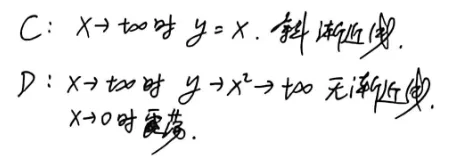 C: x→+∞时 y=x. 斜渐近线.
D: x→+∞时 y→x²→+∞ 无渐近线.
x→0时震荡.